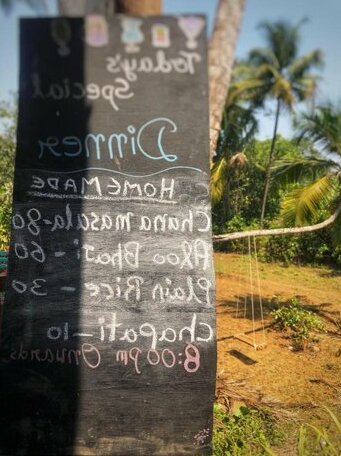 Today's
Special
Dinner
HOMEMADE
Chana masala-80
Aloo Bhaji - 60
Plain Rice - 30
Chapati-10
8:00pm Onwards